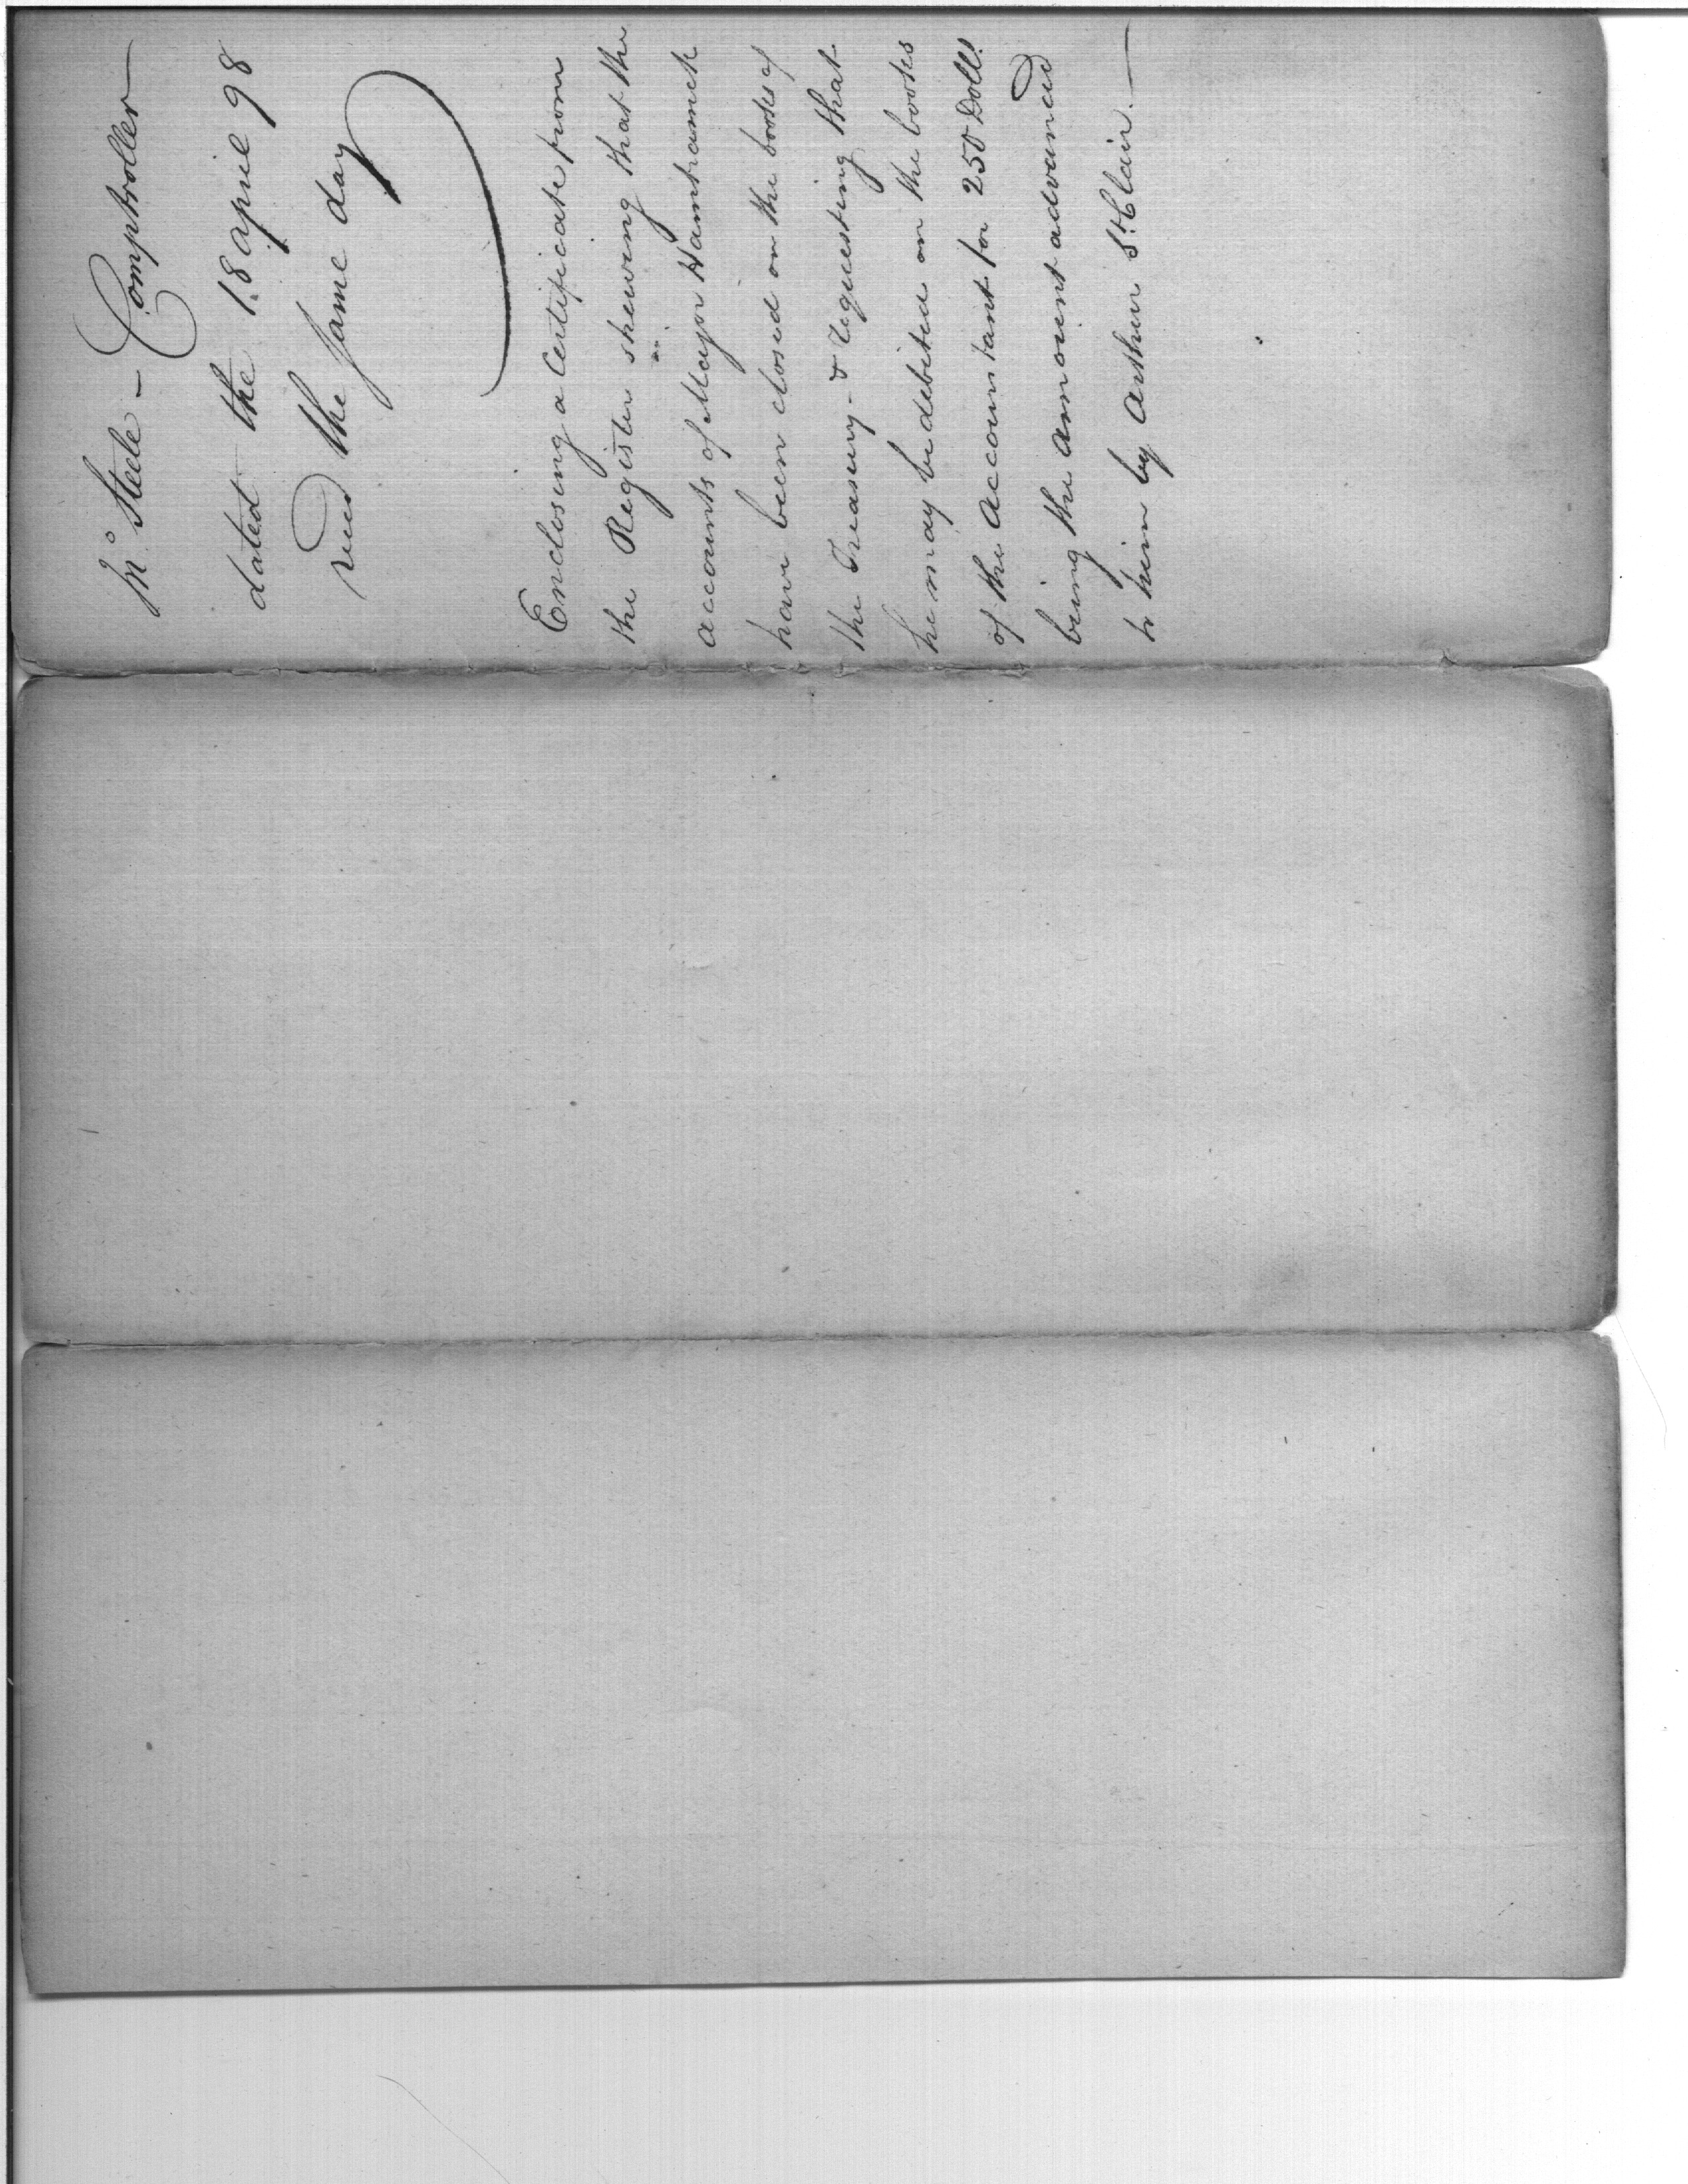 Mr Steele - Comptroller
dated the 18 april 98
recd the same day
Enclosing a Certificate from
the Register shewing that the
accounts of Major Hamtramck
have been closed on the books of
the Treasury - & requesting that
he may be debited on the books
of the Accountant for 250 Dolls
being the amount advanced
to him by Arthur St Clair. —